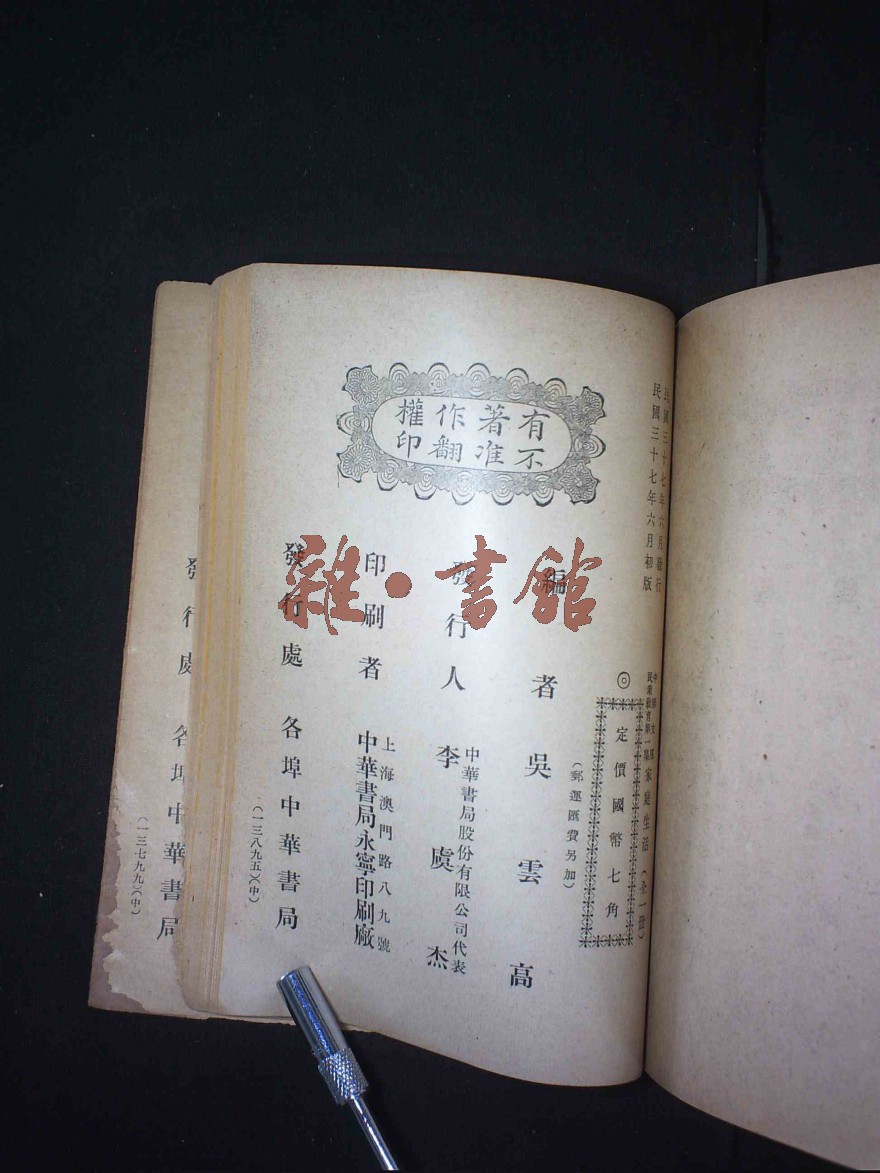 民國三十七年六月發行
民國三十七年六月初版
中華文庫
民眾教育第一集
家庭生活（全一冊）
◎
定價國幣七角
（郵運匯費另加）
有著作權
不准翻印
編者 吳雲高
發行人 李虞杰
中華書局股份有限公司代表
印刷者
上海澳門路八九號
中華書局永寧印刷廠
發行處 各埠中華書局
（一三八九五）（中）
發行處 各埠中華書局
（一三七九九）（中）
雜·書館